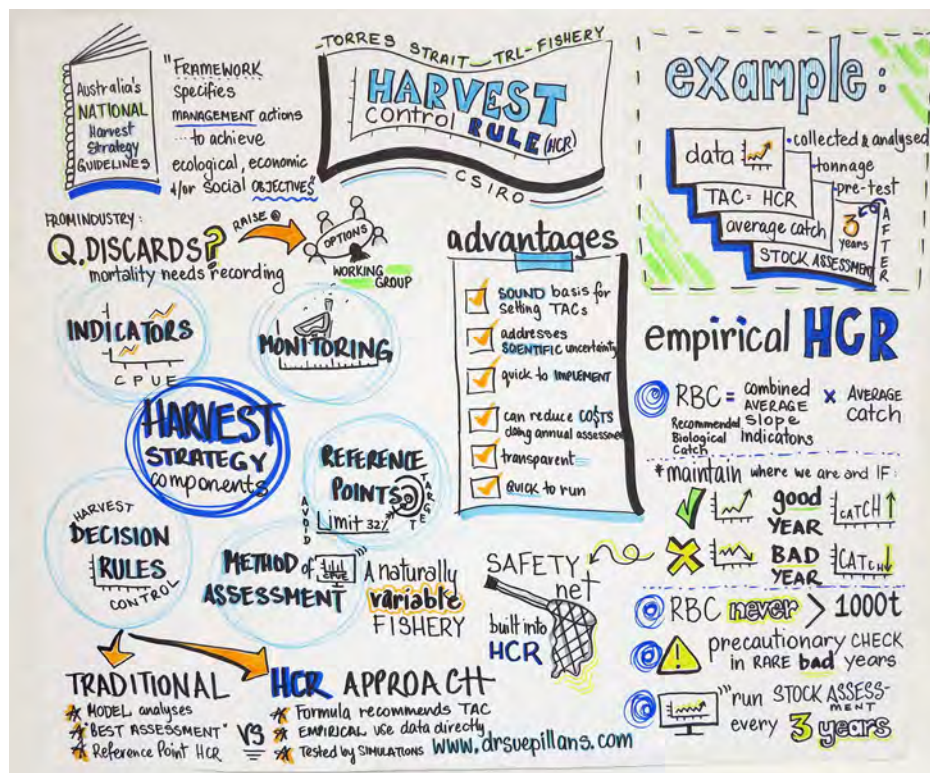 Australia's
NATIONAL
Harvest
Strategy
GUIDELINES
"FRAMEWORK
specifies
MANAGEMENT actions
...to achieve
ecological, economic
&/or Social OBJECTIVES"
TORRES STRAIT TRL-FISHERY
HARVEST
control RULE (HCR)
CSIRO
example:
data
collected & analysed
TAC = HCR
tonnage
average catch
pre-test
STOCK ASSESSMENT
3
years
AFTER
FROM INDUSTRY:
Q. DISCARDS?
mortality needs recording
RAISE @
OPTIONS
WORKING
GROUP
INDICATORS
CPUE
MONITORING
HARVEST
STRATEGY
components
REFERENCE
POINTS
AVOID
Limit 32%
TARGET
HARVEST
DECISION
RULES
CONTROL
METHOD of
CPUE
ASSESSMENT
A naturally
variable
FISHERY
advantages
SOUND basis for
setting TACs
addresses
SCIENTIFIC uncertainty
quick to IMPLEMENT
can reduce CO$TS
doing annual assessment
transparent
QUICK to run
SAFETY
net
built into
HCR
empirical HCR
RBC = combined
AVERAGE
Slope
Indicators
x AVERAGE
catch
Recommended
Biological
Catch
*maintain where we are and IF:
good
YEAR
CATCH
BAD
YEAR
CATCH
RBC never > 1000t
precautionary CHECK
in RARE bad years
run STOCK ASSESS-
MENT
every 3 years
TRADITIONAL
MODEL analyses
"BEST ASSESSMENT"
Reference Point HCR
VS
HCR APPROACH
Formula recommends TAC
EMPIRICAL use data directly
Tested by SIMULATIONS
www.drsuepillans.com